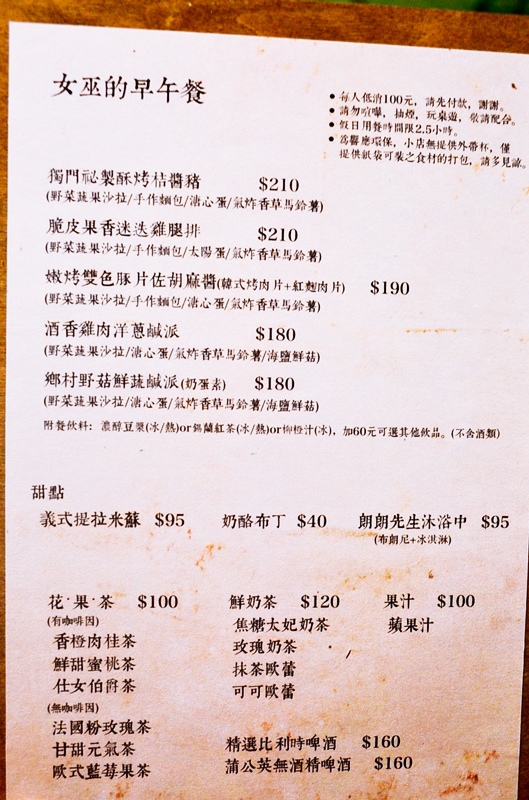 女巫的早午餐
● 每人低消100元，請先付款，謝謝。
● 請勿喧嘩，抽煙，玩桌遊，敬請配合。
● 假日用餐時間限2.5小時。
● 為響應環保，小店無提供外帶杯，僅
提供紙袋可裝之食材的打包，請多見諒。
獨門祕製酥烤桔醬豬 $210
(野菜蔬果沙拉/手作麵包/溏心蛋/氣炸香草馬鈴薯)
脆皮果香迷迭雞腿排 $210
(野菜蔬果沙拉/手作麵包/太陽蛋/氣炸香草馬鈴薯)
嫩烤雙色豚片佐胡麻醬(韓式烤肉片+紅麴肉片) $190
(野菜蔬果沙拉/手作麵包/溏心蛋/氣炸香草馬鈴薯)
酒香雞肉洋蔥鹹派 $180
(野菜蔬果沙拉/溏心蛋/氣炸香草馬鈴薯/海鹽鮮菇)
鄉村野菇鮮蔬鹹派(奶蛋素) $180
(野菜蔬果沙拉/溏心蛋/氣炸香草馬鈴薯/海鹽鮮菇)
附餐飲料: 濃醇豆漿(冰/熱)or錫蘭紅茶(冰/熱)or柳橙汁(冰)，加60元可選其他飲品。(不含酒類)
甜點
義式提拉米蘇 $95 奶酪布丁 $40 朗朗先生沐浴中 $95
(布朗尼+冰淇淋)
花·果·茶 $100
(有咖啡因)
香橙肉桂茶
鮮甜蜜桃茶
仕女伯爵茶
(無咖啡因)
法國粉玫瑰茶
甘甜元氣茶
歐式藍莓果茶
鮮奶茶 $120
焦糖太妃奶茶
玫瑰奶茶
抹茶歐蕾
可可歐蕾
精選比利時啤酒 $160
蒲公英無酒精啤酒 $160
果汁 $100
蘋果汁